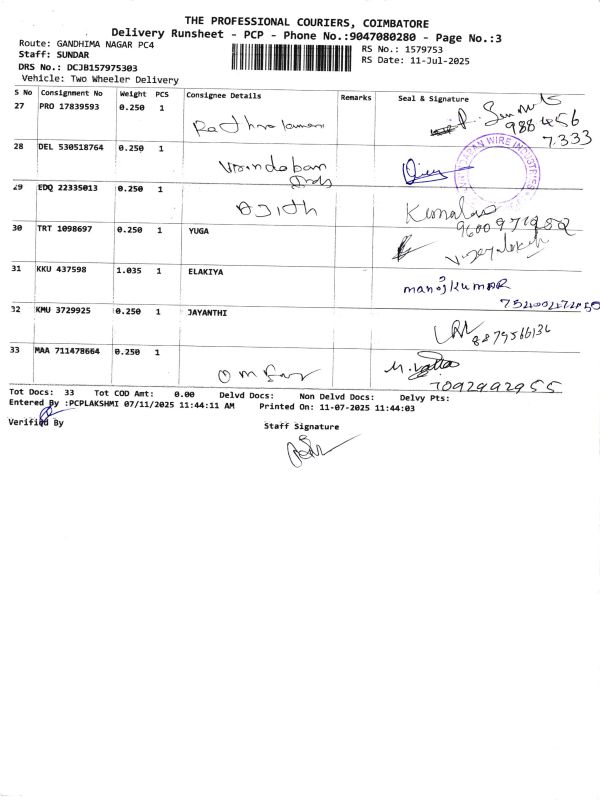 THE PROFESSIONAL COURIERS, COIMBATORE
Delivery Runsheet - PCP - Phone No.:9047080280 - Page No.:3
Route: GANDHIMA NAGAR PC4
RS No.: 1579753
Staff: SUNDAR
RS Date: 11-Jul-2025
DRS No.: DCJB157975303
Vehicle: Two Wheeler Delivery
S No Consignment No Weight PCS Consignee Details Remarks Seal & Signature
27 PRO 17839593 0.250 1
988456
7333
28 DEL 530518764 0.250 1 Vrindaban
WIRE INDUSTRIES
29 EDQ 22335013 0.250 1 Ajith
30 TRT 1098697 0.250 1 YUGA
31 KKU 437598 1.035 1 ELAKIYA manojkumar
32 KMU 3729925 0.250 1 JAYANTHI
33 MAA 711478664 0.250 1
7092992955
Tot Docs: 33 Tot COD Amt: 0.00 Delvd Docs: Non Delvd Docs: Delvy Pts:
Entered By :PCPLAKSHMI 07/11/2025 11:44:11 AM Printed On: 11-07-2025 11:44:03
Verified By
Staff Signature